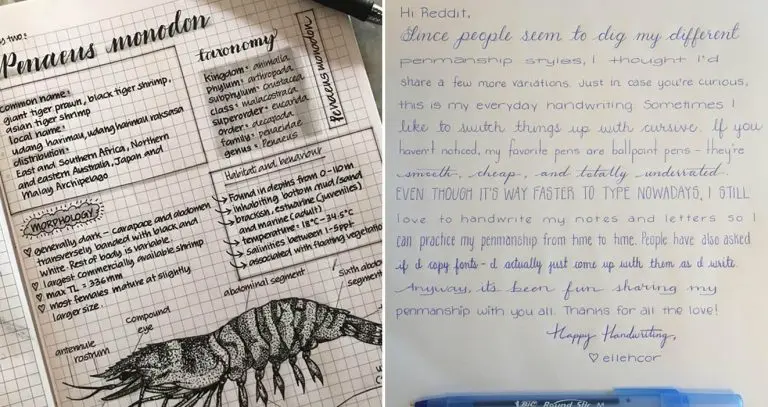 y two:
Penaeus monodon
common name:
giant tiger prawn, black tiger shrimp,
asian tiger shrimp
local name:
udang harimau, udang harimau raksasa
distribution:
East and Southern Africa, Northern
and eastern Australia, Japan and
Malay Archipelago
taxonomy
kingdom: animalia
phylum: arthropoda
subphylum: crustacea
class: malacostraca
superorder: eucarida
order: decapoda
family: Penaeidae
genus: Penaeus
Penaeus monodon
MORPHOLOGY
generally dark - carapace and abdomen
transversely banded with black and
white. Rest of body is variable.
largest commercially available shrimp
max TL = 336mm
most females mature at slightly
larger size.
Habitat and behaviour
Found in depths from 0-110m
Inhabiting bottom mud/sand
brackish, estuarine (juveniles)
and marine (adult)
temperature: 18°C - 34.5°C
Salinities between 1-5ppt
associated with floating vegetatio
antennule
rostrum
compound
eye
abdominal segment
Sixth abdo
segment
Hi Reddit,
Since people seem to dig my different
penmanship styles, I thought I'd
share a few more variations. Just in case you're curious,
this is my everyday handwriting. Sometimes I
like to switch things up with cursive. If you
haven't noticed, my favorite pens are ballpoint pens - they're
smooth, cheap, and totally underrated.
EVEN THOUGH IT'S WAY FASTER TO TYPE NOWADAYS, I STILL
love to handwrite my notes and letters so I
can practice my penmanship from time to time. People have also asked
if I copy fonts - I actually just come up with them as I write.
Anyway, it's been fun sharing my
penmanship with you all. Thanks for all the love!
Happy Handwriting,
♡ ellencor
BIC Round Stic M